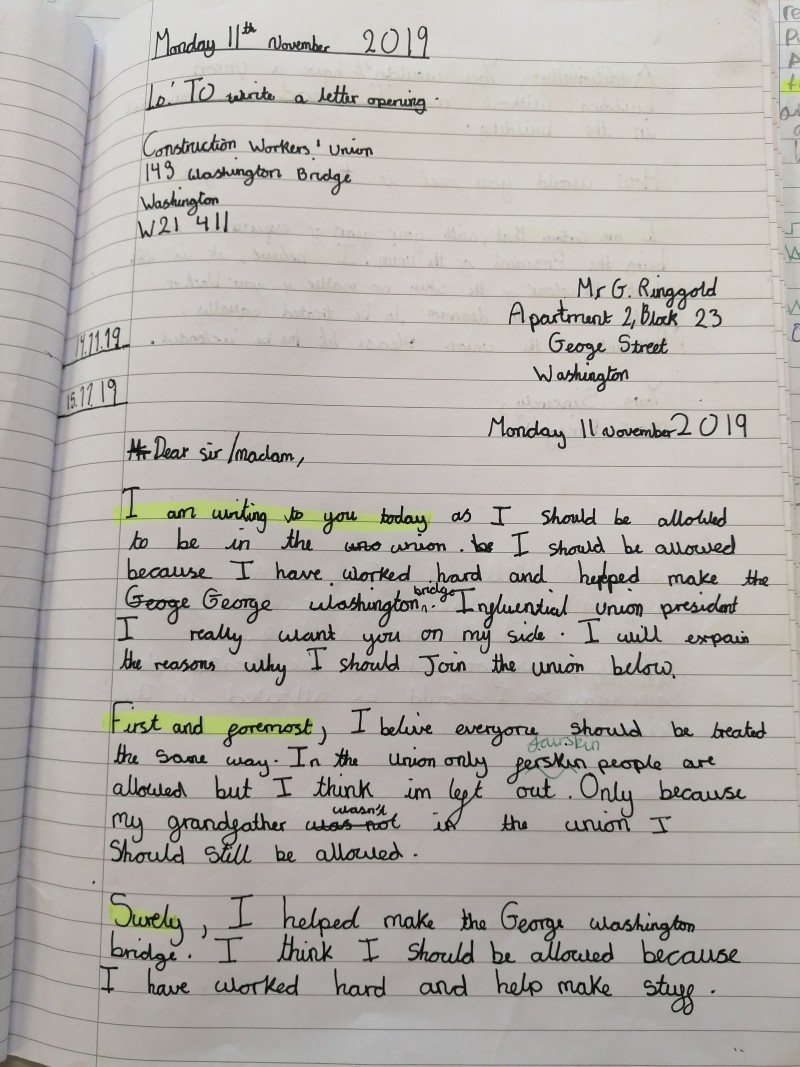 Monday 11th November 2019
Lo: TO write a letter opening.
Construction Workers' Union
143 Washington Bridge
Washington
W21 411
Mr G. Ringgold
Apartment 2, Block 23
Geoge Street
Washington
14.11.19
15.11.19
Monday 11 November 2019
Dear sir/madam,
I am writing to you today as I should be allowed
to be in the uno union. be I should be allowed
because I have worked hard and helped make the
Geoge George Washington bridge. Influential union president
I really want you on my side. I will expain
the reasons why I should Join the union below.
First and foremost, I belive everyone should be treated
the same way. In the union only ferskin fairskin people are
allowed but I think im left out. Only because
my grandfather was not wasn't in the union I
Should still be allowed.
Surely, I helped make the George Washington
bridge. I think I should be allowed because
I have worked hard and help make stuff.